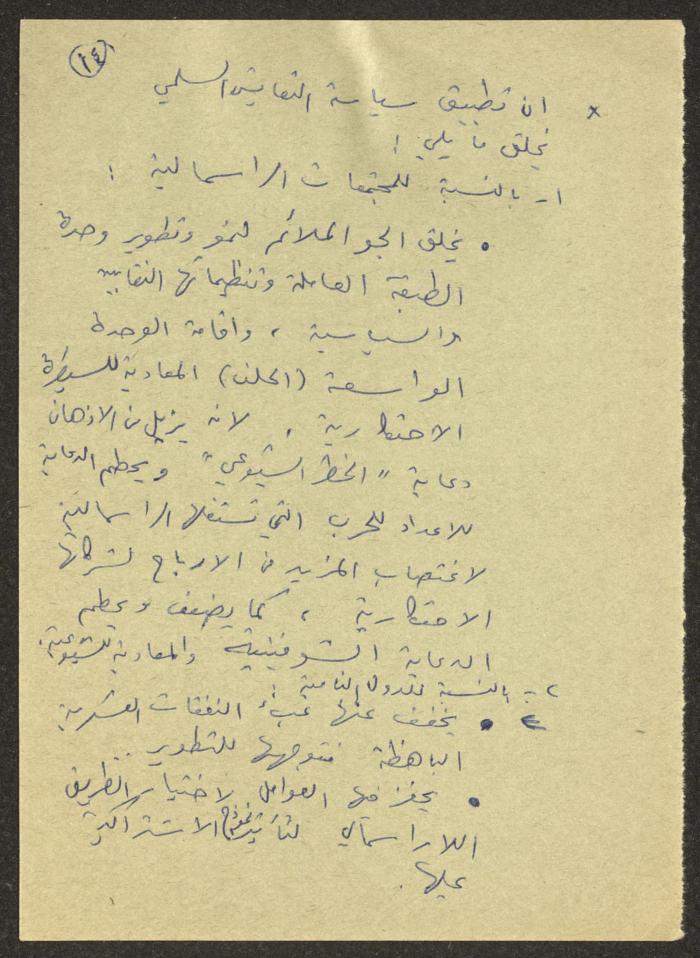 ١٤
× ان تطبيق سياسة التعايش السلمي
يخلق ما يلي :
١ـ بالنسبة للمجتمعات الراسمالية :
• يخلق الجو الملائم لنمو وتطوير وحدة
الطبقة العاملة وتنظيماتها النقابية
والسياسية ، واقامة الوحدة
الواسعة (الحلف) المعادية للسيطرة
الاحتكارية ، لانه يزيل من الاذهان
دعاية "الخطر الشيوعي" ويحطم الدعاية
للاعداد للحرب التي تستغلها الراسمالية
لاغتصاب المزيد من الارباح لشركاتها
الاحتكارية ، كما يضعف ويحطم
الدعاية الشوفينية والمعادية للشيوعية .
٢ـ بالنسبة للدول النامية :
• يخفف عنها عبء النفقات العسكرية
الباهظة فتوجهها للتطوير ..
• يحفز فيها العوامل لاختيار الطريق
اللاراسمالي لتأثير نموذج الاشتراكية
عليها .